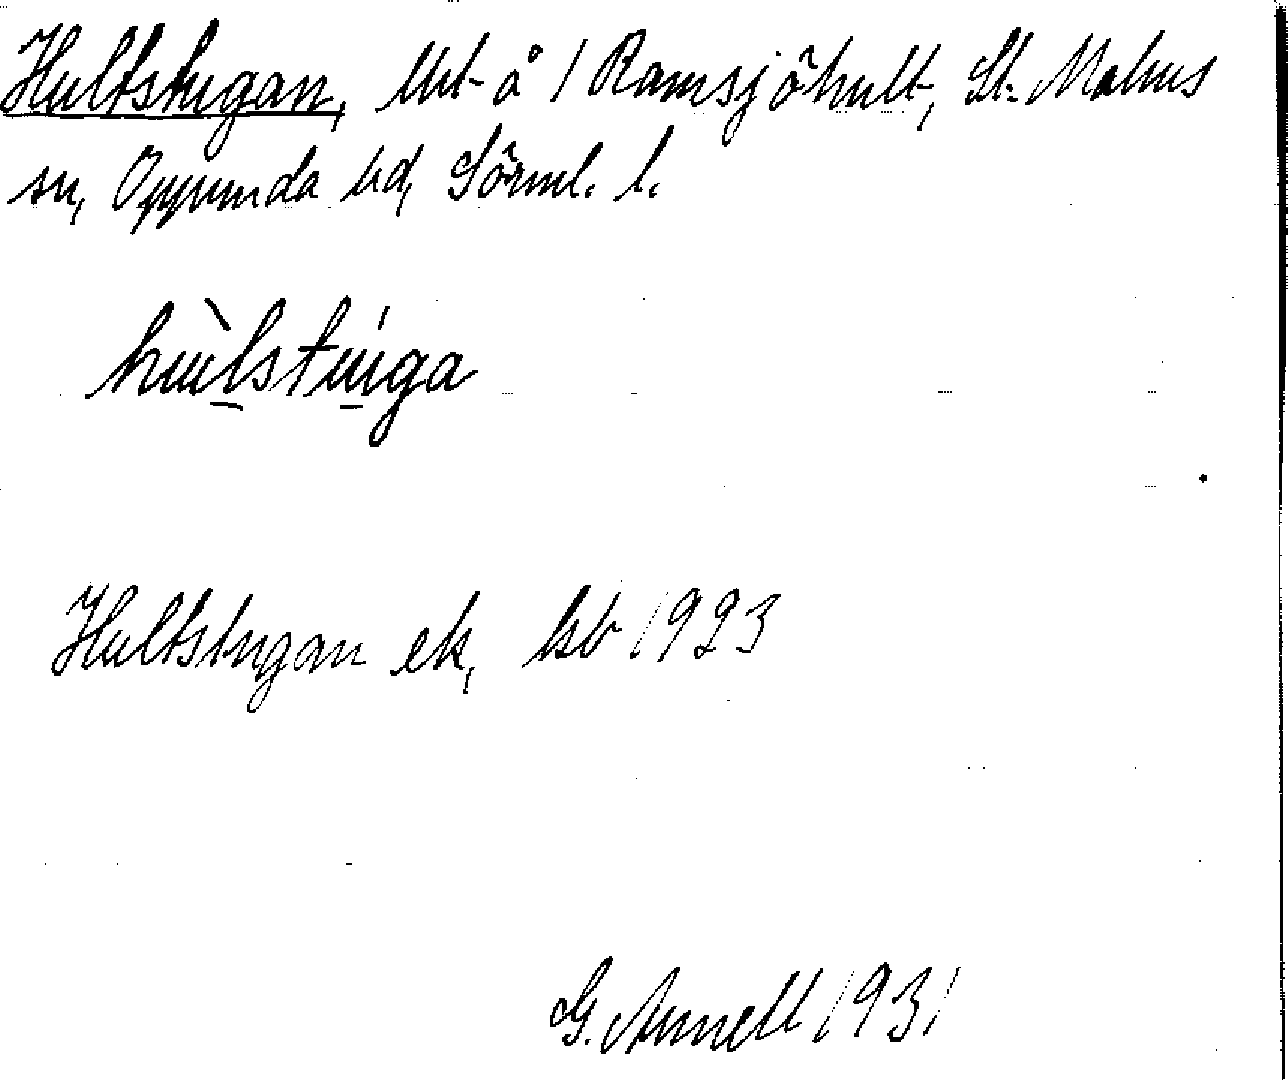 Hultstugan, Utt å 1 Ramsjöhult, St. Malms
sn, Oppunda hd, Sörml. l.
hùlstúga
Hultstugan ek, 1923
G. Annell 1931